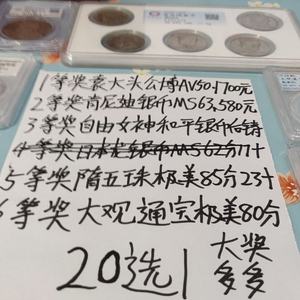 1等奖袁大头公博AU50,1700元
2等奖肯尼迪银币MS63,580元
3等奖自由女神和平银币后铸
4等奖日本龙银币MS62分
5等奖隋五珠极美85分23十
6等奖大观通宝极美80分
20选1
大奖
多多